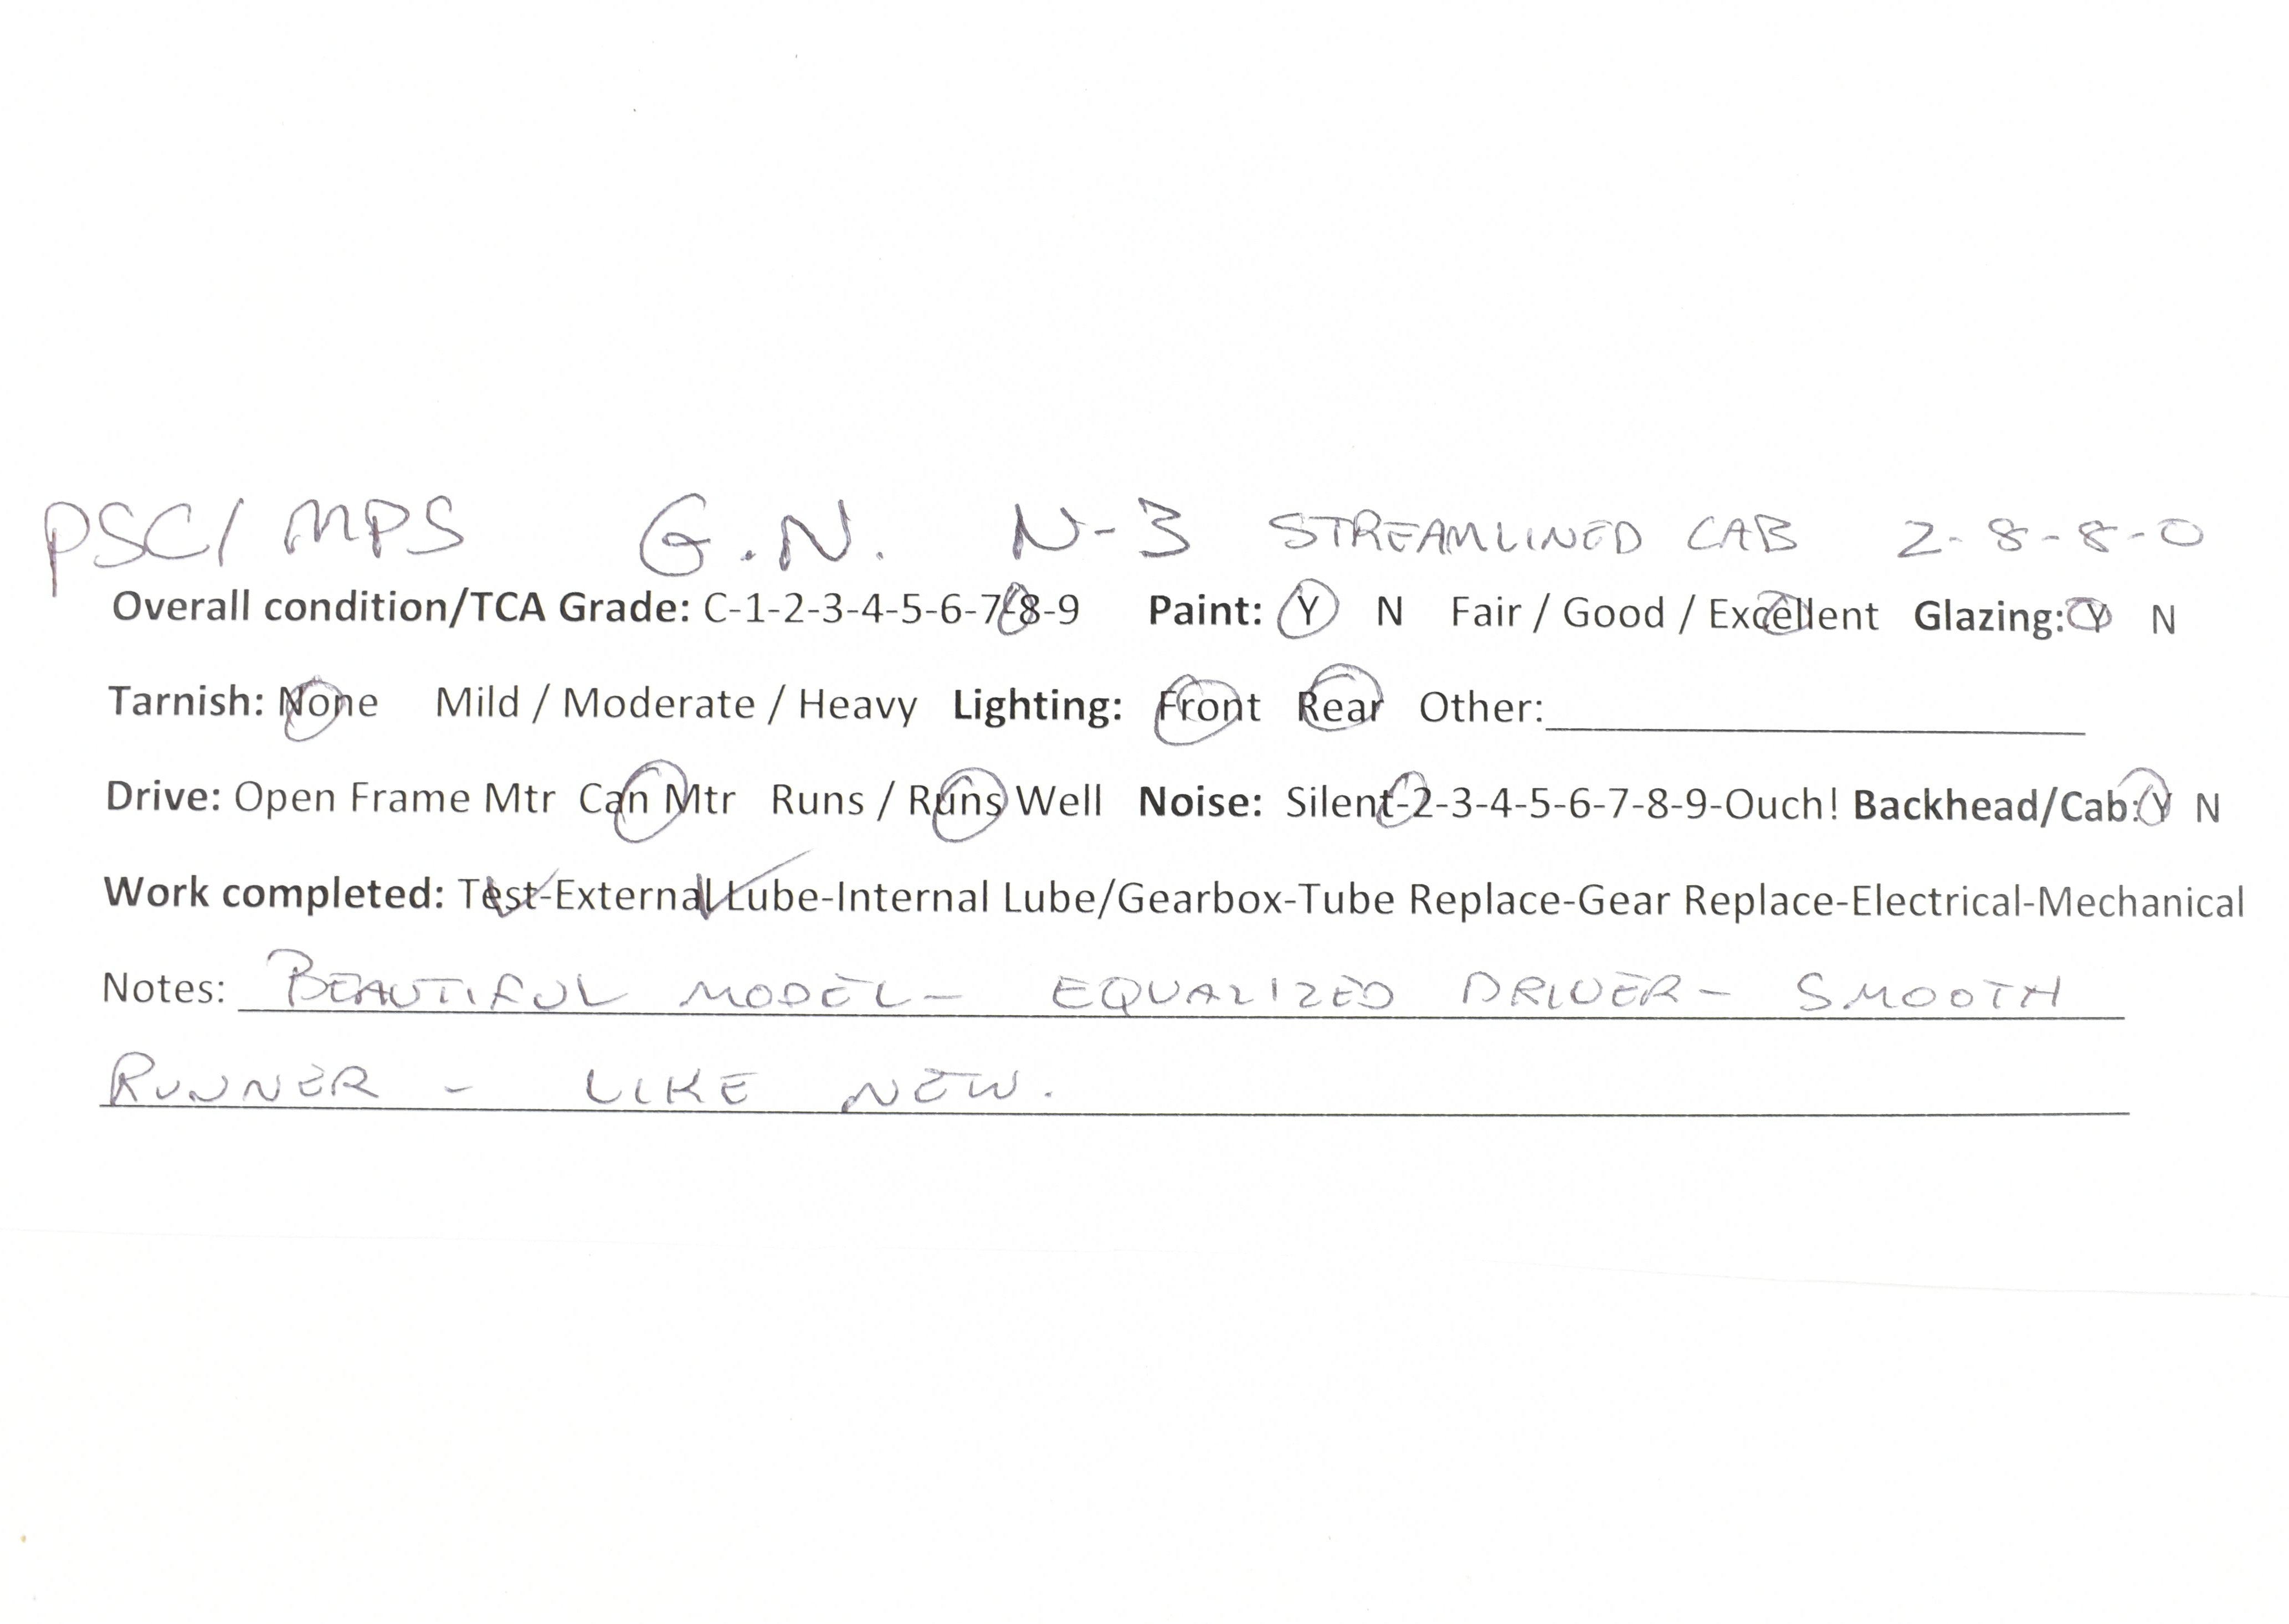 PSC/MPS G.N. N-3 STREAMLINED CAB 2-8-8-0
Overall condition/TCA Grade: C-1-2-3-4-5-6-7-8-9 Paint: Y N Fair / Good / Excellent Glazing: Y N
Tarnish: None Mild / Moderate / Heavy Lighting: Front Rear Other:
Drive: Open Frame Mtr Can Mtr Runs / Runs Well Noise: Silent-2-3-4-5-6-7-8-9-Ouch! Backhead/Cab: Y N
Work completed: Test-External Lube-Internal Lube/Gearbox-Tube Replace-Gear Replace-Electrical-Mechanical
Notes: BEAUTIFUL MODEL- EQUALIZED DRIVER- SMOOTH
RUNNER - LIKE NEW.